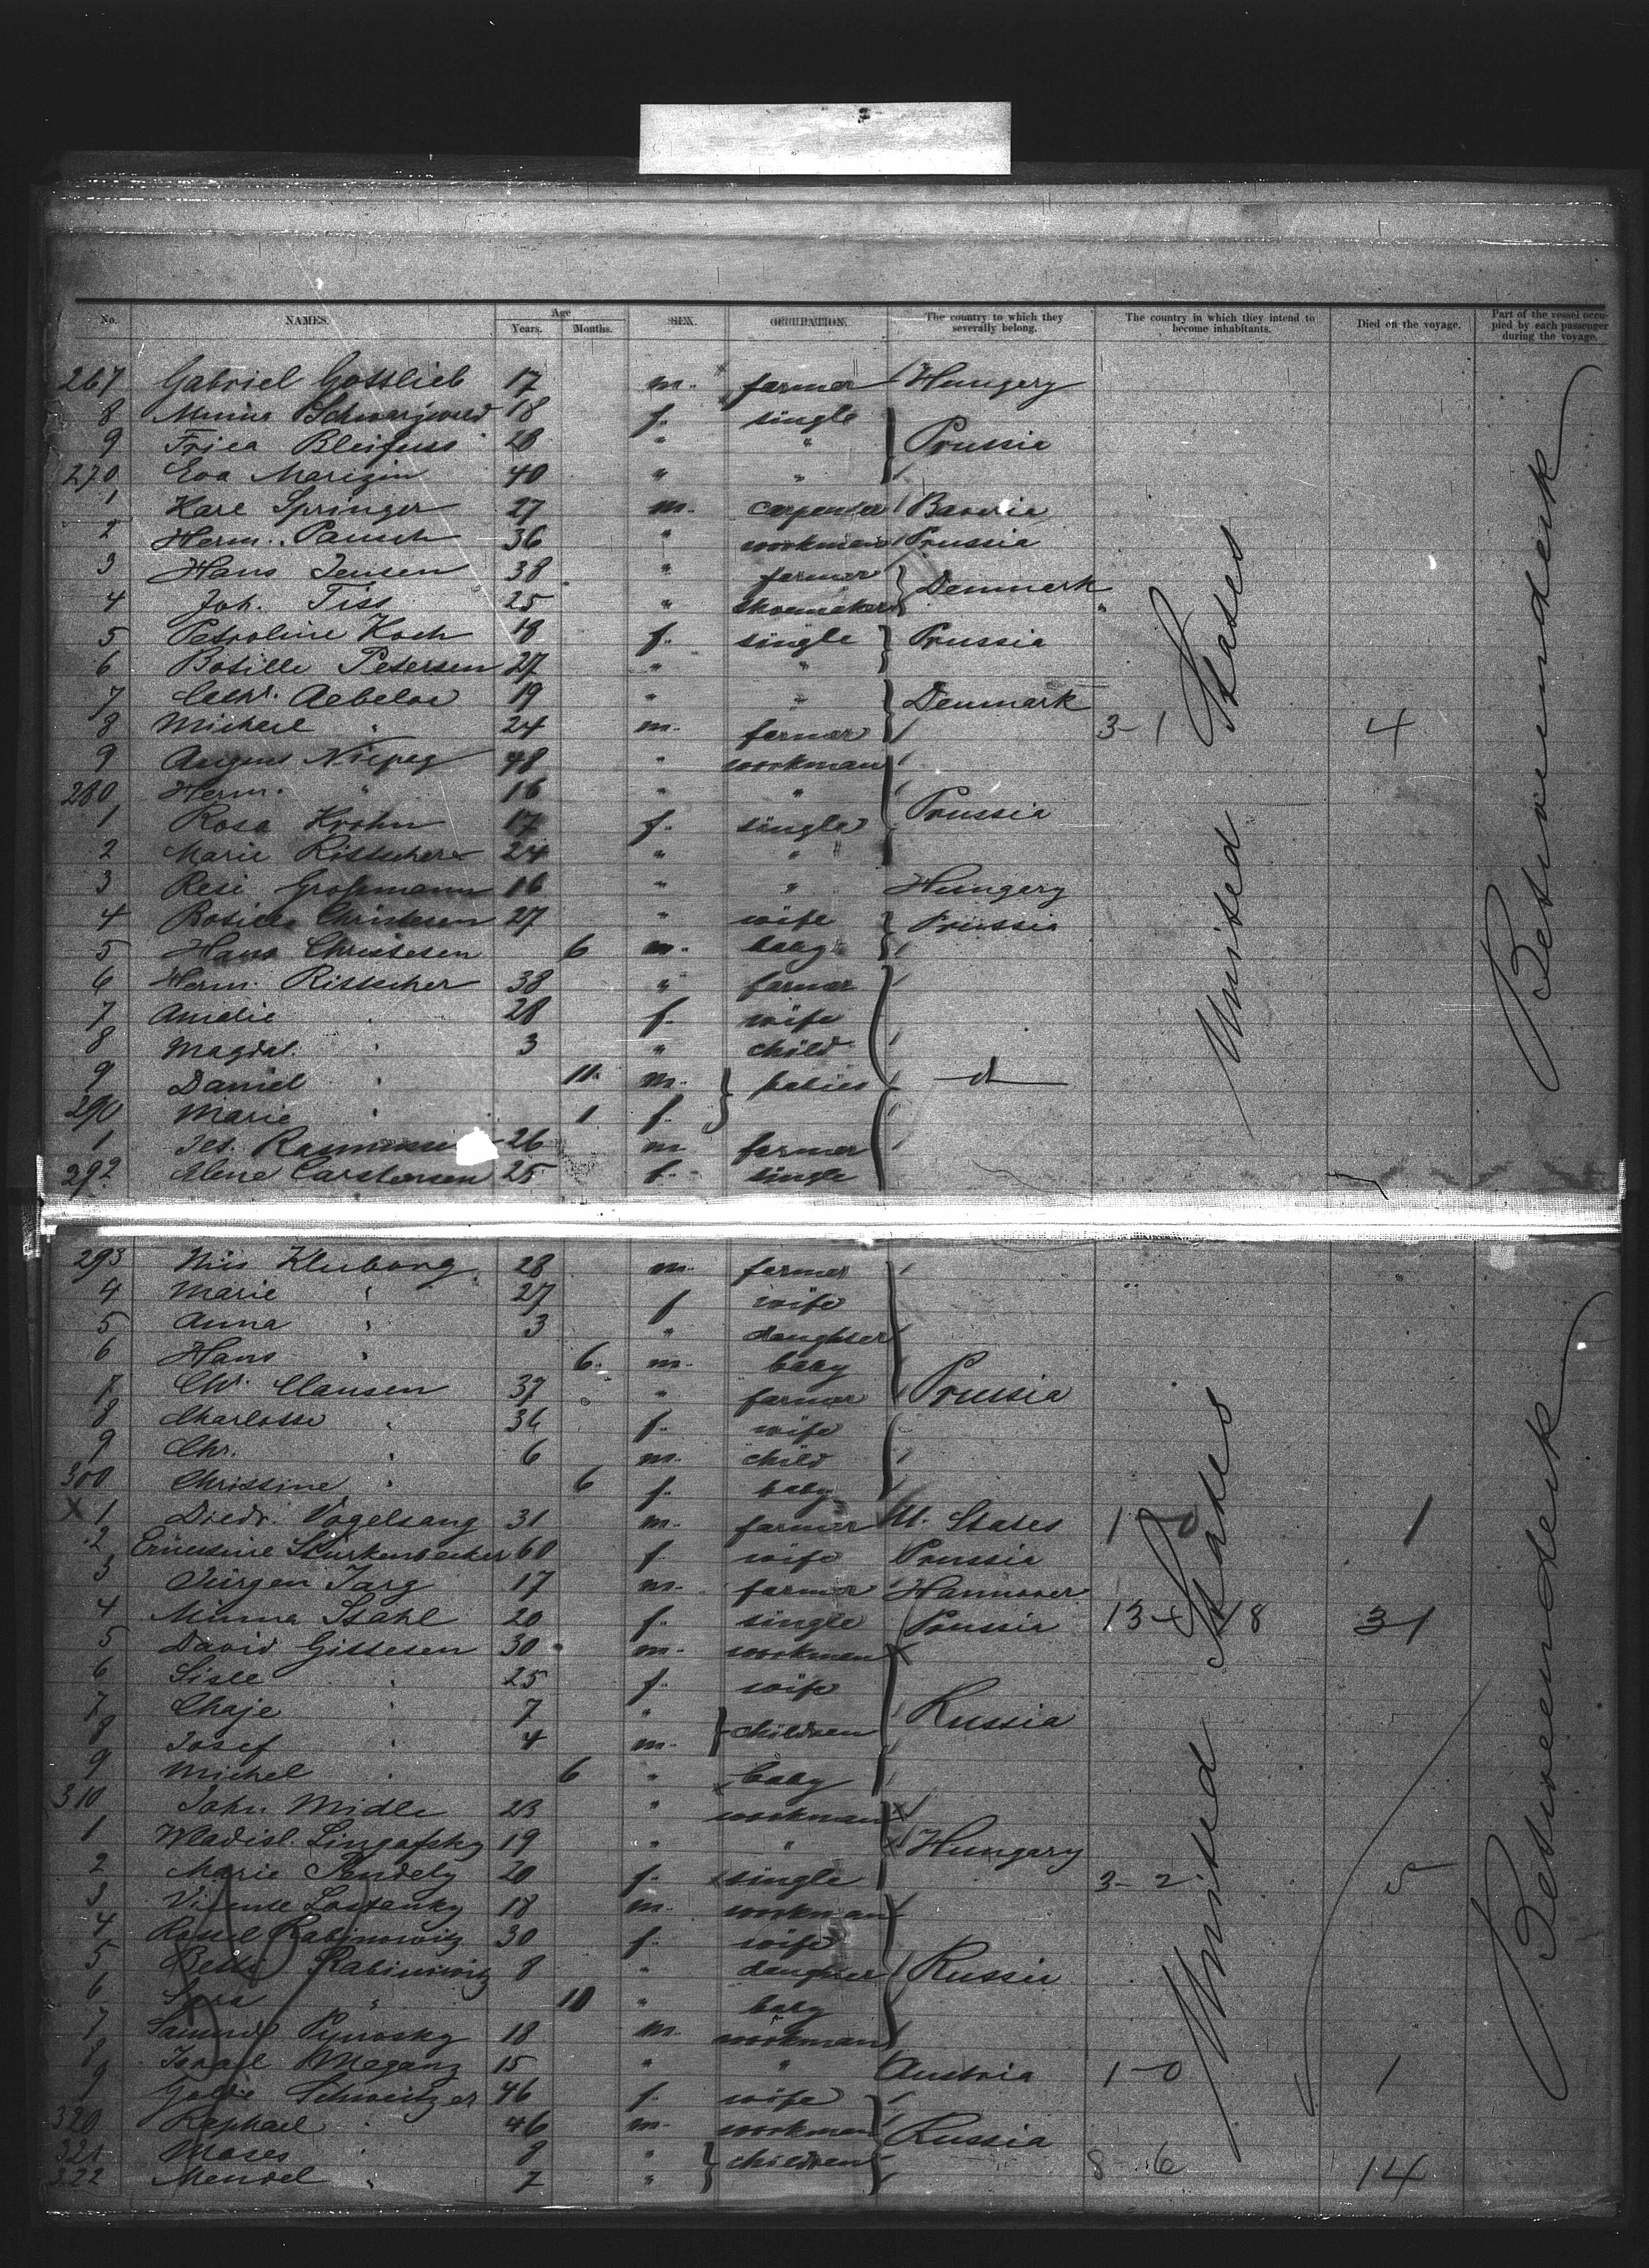 No. NAMES. Age Years. Months. SEX. OCCUPATION. The country to which they severally belong. The country in which they intend to become inhabitants. Died on the voyage. Part of the vessel occupied by each passenger during the voyage.
267 Gabriel Gottlieb 17 m. farmer Hungery
8 Minna 18 f. single
9 Bleifuss 28 " " Prussia
270 Eva 40 " "
1 Karl Springer 27 m. carpenter Bavaria
2 Herm. Pausch 36 " workman Prussia
3 Hans Jensen 38 " farmer Denmark
4 Joh. Tiss 25 " shoemaker "
5 Petroline Koch 18 f. single Prussia
6 Botille Petersen 27 " "
7 Aebeloe 19 " " Denmark
8 Michael " 24 m. farmer 3-1 4
9 August Niepeg 48 " workman
280 Herm. " 16 " "
1 Rosa Krohn 17 f. single Prussia
2 Marie Rittscher 24 " "
3 Resi Großmann 16 " " Hungery
4 Christesen 27 " wife Prussia
5 Hans Christesen 6 m. baby
6 Herm. Rittscher 38 " farmer
7 Amalie " 28 f. wife
8 Magdal. " 3 " child
9 Daniel " 11 m. babies
290 Marie " 1 f.
1 26 m farmer
292 Carstensen 25 f. single
United States
Betweendeck
293 Nis Kluborg 28 m. farmer
4 Marie " 27 f wife
5 Anna " 3 " daughter
6 Hans " 6. m. baby
7 Chr. Clausen 37 " farmer Prussia
8 Charlotte " 36 f. wife
9 Chr. " 6 m. child
300 Christine " 6 f. baby
X 1 Diedr. Vogelsang 31 m. farmer U. States 1-0 1
2 Ernestine 60 f. wife Prussia
3 Jürgen Targ 17 m. farmer Hannover
4 Minna Stahl 20 f. single Prussia 13 18 31
5 David Gittesen 30 m. workman
6 " 25 f. wife
7 Chaje " 7 " children Russia
8 Josef " 4 m.
9 Michel " 6 " baby
310 John Midle 23 " workman
1 Wladisl. 19 " " Hungary
2 Marie 20 f. single 3-2 5
3 18 m. workman
4 Rabinowitz 30 f. wife
5 Betti Rabinowitz 8 " daughter Russia
6 Sara " 10 " baby
7 Samuel 18 m. workman
8 Israel 15 " " Austria 1-0 1
9 Golde Schweitzer 46 f. wife
320 Raphael " 46 m. workman Russia
321 Moses " 8 " children
322 Mendel " 7 " 8-6 14
United States
Betweendeck